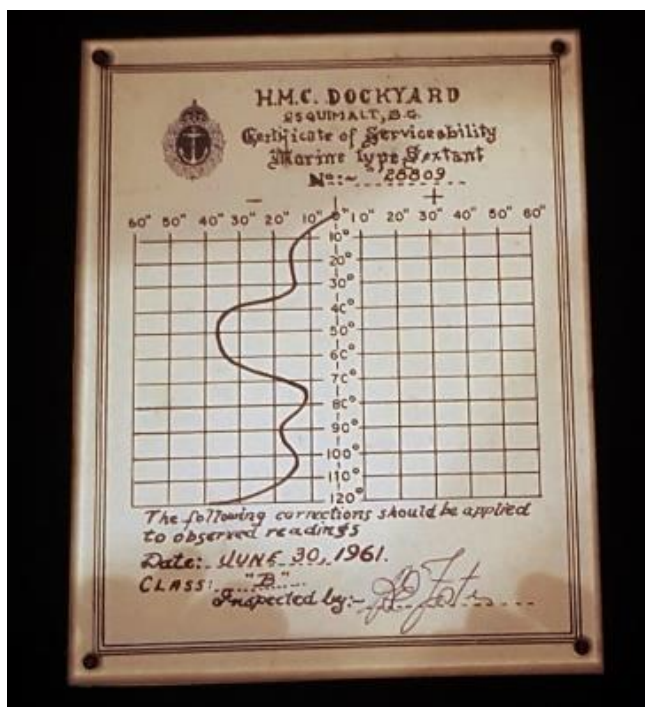 H.M.C. DOCKYARD
ESQUIMALT, B.C.
Certificate of Serviceability
Marine type Sextant
No:~ 28809
− +
60" 50" 40" 30" 20" 10" 0" 10" 20" 30" 40" 50" 60"
10°
20°
30°
40°
50°
60°
70°
80°
90°
100°
110°
120°
The following corrections should be applied
to observed readings
Date: JUNE 30, 1961.
CLASS: "B"
Inspected by:-